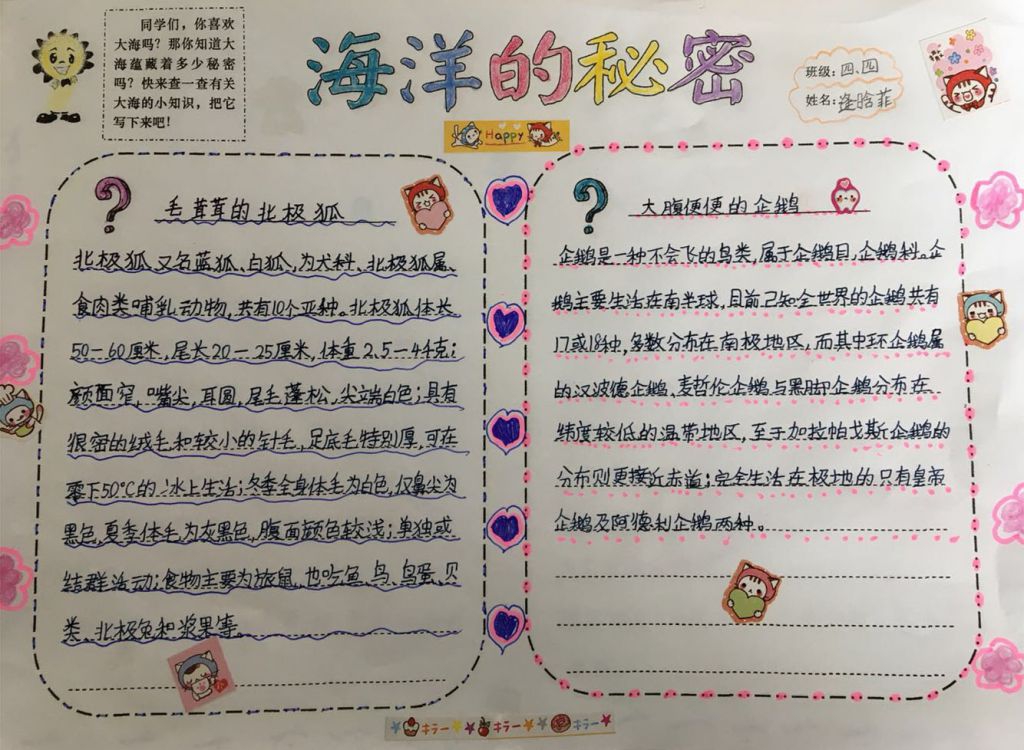 同学们，你喜欢
大海吗？那你知道大
海蕴藏着多少秘密
吗？快来查一查有关
大海的小知识，把它
写下来吧！
海洋的秘密
班级：四、四
姓名：逄晗菲
Happy
毛茸茸的北极狐
北极狐,又名蓝狐、白狐,为犬科、北极狐属、
食肉类哺乳动物,共有10个亚种。北极狐体长
50—60厘米,尾长20—25厘米,体重2.5—4千克;
颜面窄,嘴尖,耳圆,尾毛蓬松,尖端白色;具有
很密的绒毛和较小的针毛,足底毛特别厚,可在
零下50℃的冰上生活;冬季全身体毛为白色,仅鼻尖为
黑色,夏季体毛为灰黑色,腹面颜色较浅;单独或
结群活动;食物主要为旅鼠,也吃鱼、鸟、鸟蛋、贝
类、北极兔和浆果等。
大腹便便的企鹅
企鹅是一种不会飞的鸟类,属于企鹅目,企鹅科。企
鹅主要生活在南半球,目前已知全世界的企鹅共有
17或18种,多数分布在南极地区,而其中环企鹅属
的汉波德企鹅,麦哲伦企鹅与黑脚企鹅分布在
纬度较低的温带地区,至于加拉帕戈斯企鹅的
分布则更接近赤道;完全生活在极地的只有皇帝
企鹅及阿德利企鹅两种。
キラー キラー キラー